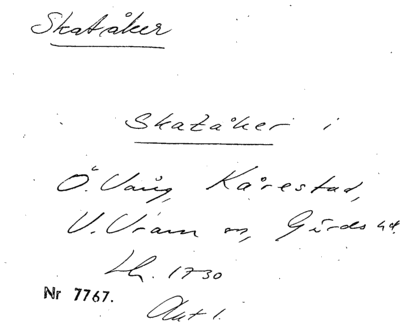 Skatåker
Skatåker i
Ö. Vång, Kårestad,
V. Vram sn, Gärds hd.
Lh. 1730
Nr 7767.
Akt 1.